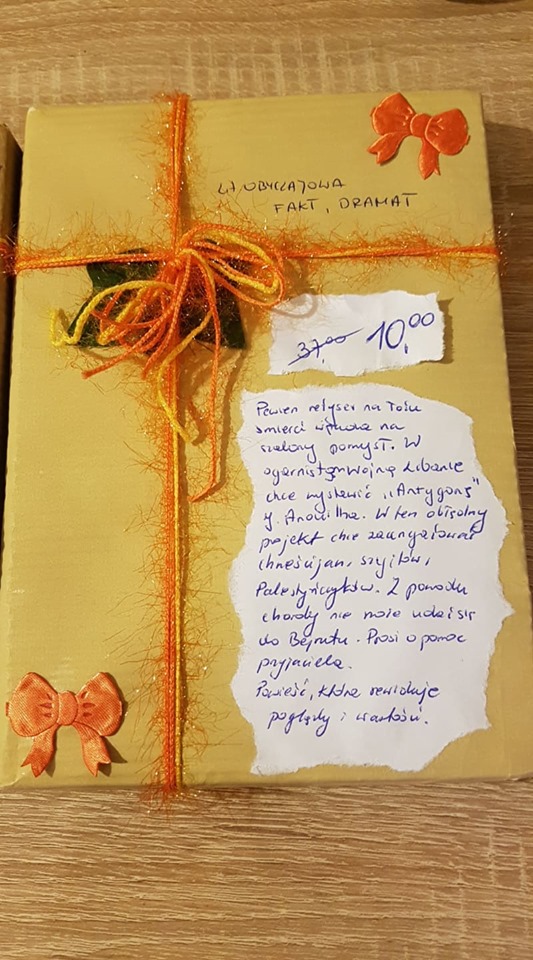 LIT. OBYCZAJOWA
FAKT, DRAMAT
37,00 10,00
Pewien reżyser na łożu
śmierci wpada na
szalony pomysł. W
ogarniętym wojną Libanie
chce wystawić ,,Antygonę"
J. Anouilha. W ten obłędny
projekt chce zaangażować
chrześcijan, szyitów,
Palestyńczyków. Z powodu
choroby nie może udać się
do Bejrutu. Prosi o pomoc
przyjaciela.
Powieść, która rewiduje
poglądy i wartości.